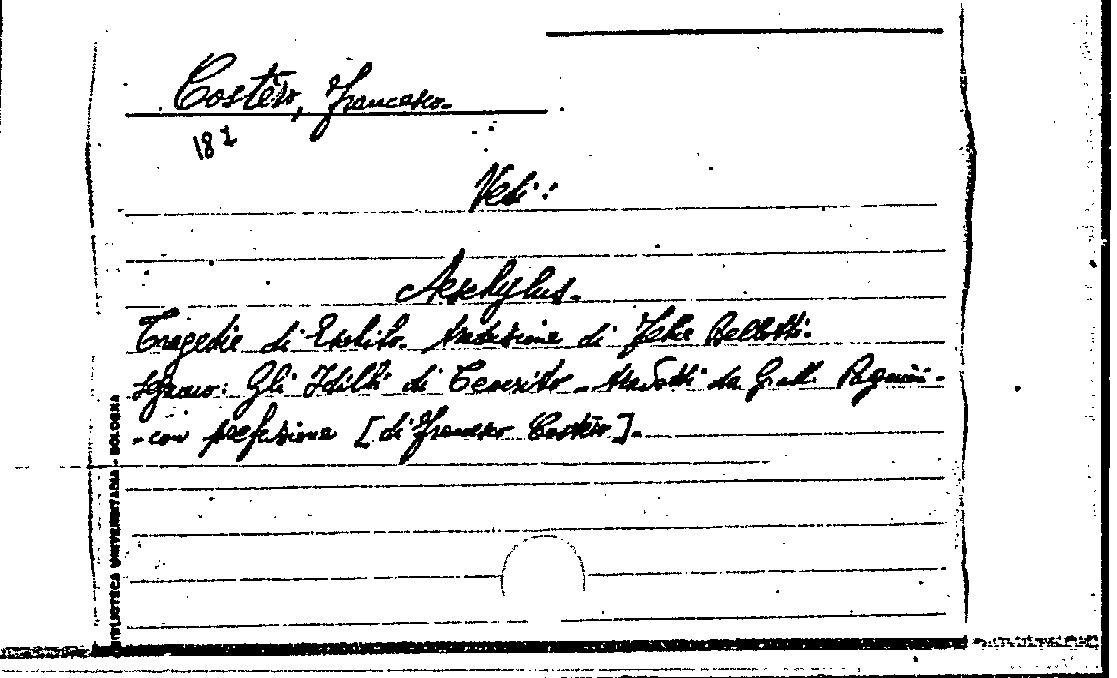 Costèro, Francesco.
18 2
Vedi:
Aeschylus.
Tragedie di Eschilo. Traduzione di Felice Bellotti.
Seguono: Gli Idilli di Teocrito - tradotti da Gius. Pagnini -
- con prefazione [di Francesco Costèro].
BIBLIOTECA UNIVERSITARIA - BOLOGNA